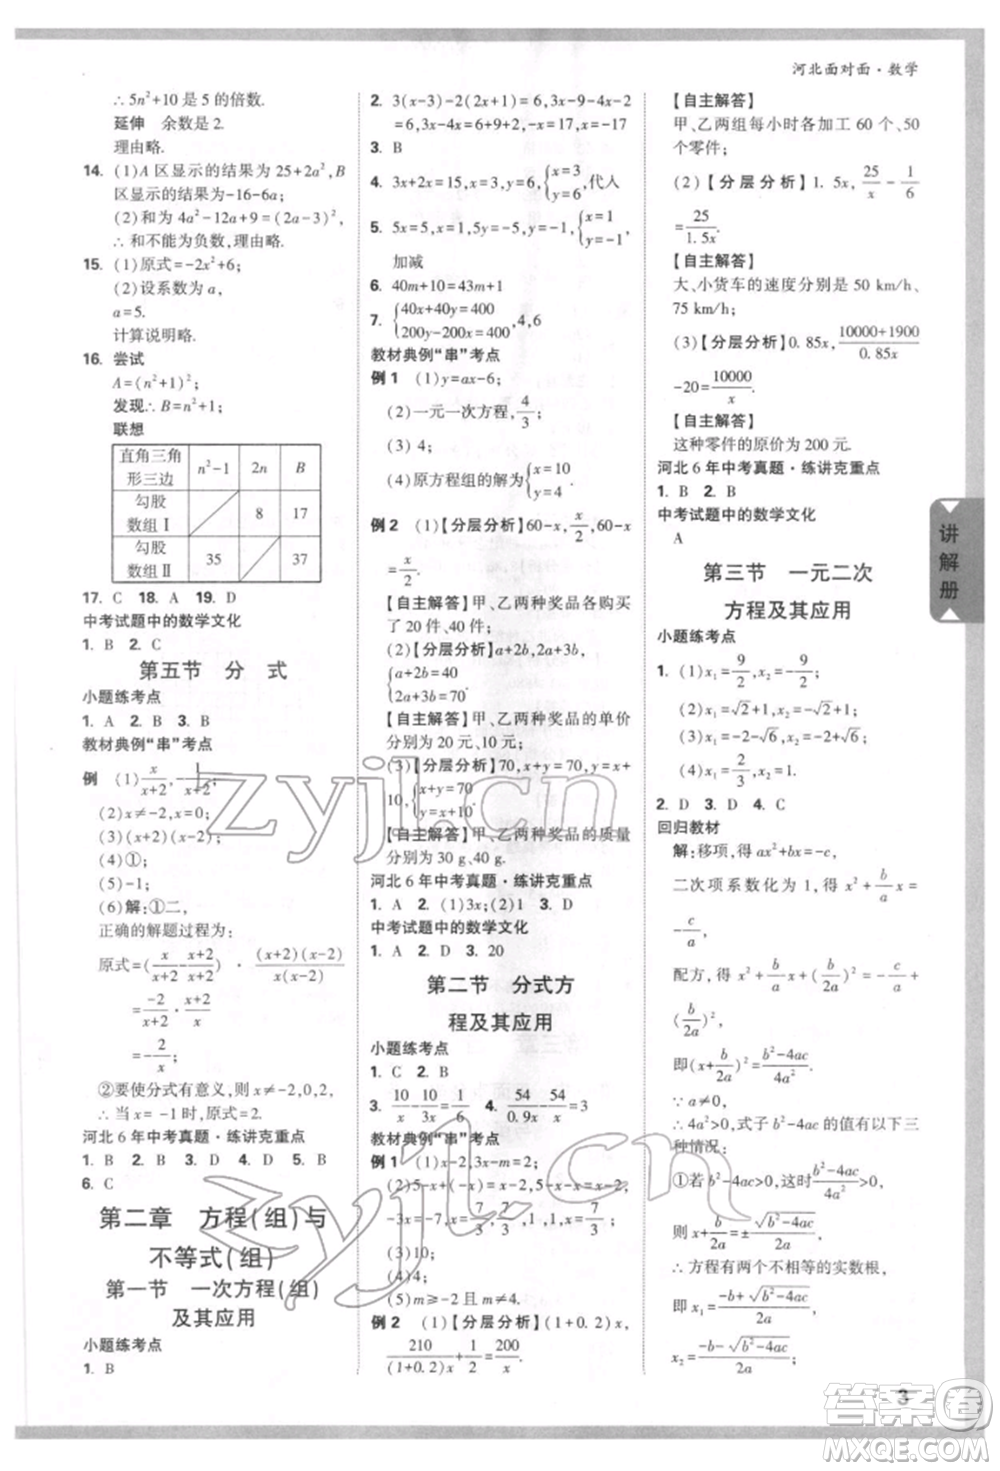 河北面对面·数学
∴ 5n²+10 是 5 的倍数.
延伸 余数是 2.
理由略.
14. (1)A 区显示的结果为 25+2a²,B
区显示的结果为-16-6a;
(2)和为 4a²-12a+9=(2a-3)²,
∴ 和不能为负数,理由略.
15. (1)原式=-2x²+6;
(2)设系数为 a,
a=5.
计算说明略.
16. 尝试
A=(n²+1)²;
发现∴ B=n²+1;
联想
直角三角形三边 n²-1 2n B
勾股数组Ⅰ 8 17
勾股数组Ⅱ 35 37
17. C 18. A 19. D
中考试题中的数学文化
1. B 2. C
第五节 分 式
小题练考点
1. A 2. B 3. B
教材典例“串”考点
例 (1)x/(x+2),-1/(x+2);
(2)x≠-2,0,2;
(3)(x+2)(x-2)
(4)①;
(5)二;
(6)解:①二,
正确的解题过程为:
原式=(x/(x+2)-(x+2)/(x+2))·(x+2)(x-2)/x
=-2/(x+2)·(x+2)(x-2)/x
②要使分式有意义,则 x≠-2,0,2,
∴ 当 x= -1 时,原式= -6.
河北 6 年中考真题·练讲克重点
1. B 2. B 3. D 4. D 5. B
6. C
第二章 方程(组)与
不等式(组)
第一节 一次方程(组)
及其应用
小题练考点
1. B
2. 3(x-3)-2(2x+1)=6,3x-9-4x-2
=6,3x-4x=6+9+2,-x=17,x=-17
3. B
4. 3x+2x=15,x=3,y=6,{x=3 y=6,代入
5. 5x=5,x=1,y=-1,{x=1 y=-1,
加减
6. 40m+10=43m+1
7. {40x+40y=400 200y-200x=400,4,6
教材典例“串”考点
例 1 (1)y=ax-6;
(2)一元一次方程,4/3;
(3) 4;
(4)原方程组的解为{x=10 y=4.
例 2 (1)【分层分析】60-x,x/2,60-x
=x/2.
【自主解答】甲、乙两种奖品各购买
了 20 件、40 件;
(2)【分层分析】a+2b,2a+3b,
{a+2b=40 2a+3b=70
【自主解答】甲、乙两种奖品的单价
分别为 20 元,10 元;
(3)【分层分析】70,x+y=70,x+
10,{x+y=70 y=x+10
【自主解答】甲、乙两种奖品的质量
分别为 30 g、40 g.
河北 6 年中考真题·练讲克重点
1. A 2. (1)3x;(2)1 3. D
中考试题中的数学文化
1. A 2. D 3. 20
第二节 分式方
程及其应用
小题练考点
1. C 2. B
3. 10/x-10/3x=1/6 4. 54/0.9x-54/x=3
教材典例“串”考点
例 1 (1)x-2,3x-m=2;
-3x=-7,x=7/3,x=7/3,x=7/3;
(3)-10;
(4)4;
(5)m≥-2 且 m≠4.
例 2 (1)【分层分析】(1+0.2)x,
210/(1+0.2)x+1/2=200/x.
【自主解答】
甲、乙两组每小时各加工 60 个、50
个零件;
(2)【分层分析】1.5x,25/x-1/6
=25/1.5x.
【自主解答】
大、小货车的速度分别是 50 km/h、
75 km/h;
(3)【分层分析】0.85x,(10000+1900)/0.85x
-20=10000/x.
【自主解答】
这种零件的原价为 200 元.
河北 6 年中考真题·练讲克重点
1. B 2. B
中考试题中的数学文化
A
第三节 一元二次
方程及其应用
小题练考点
1. (1)x₁=9/2,x₂=-9/2;
(2)x₁=√2+1,x₂=√2-1;
(3)x₁=-2-√6,x₂=-2+√6;
(4)x₁=2/3,x₂=-1.
2. D 3. D 4. C
回归教材
解:移项,得 ax²+bx=-c,
二次项系数化为 1,得 x²+b/a x=
-c/a,
配方,得 x²+b/a x+(b/2a)²=-c/a+
(b/2a)²,
即(x+b/2a)²=(b²-4ac)/4a².
∵ a≠0,
∴ 4a²>0,式子 b²-4ac 的值有以下三
种情况:
①若 b²-4ac>0,则(b²-4ac)/4a²>0,
则 x+b/2a=±√(b²-4ac)/2a,
∴ 方程有两个不相等的实数根,
即 x₁=(-b+√(b²-4ac))/2a,
x₂=(-b-√(b²-4ac))/2a;
讲解册
3
zyjl.cn
zyjl.cn
答案圈
MXQE.COM